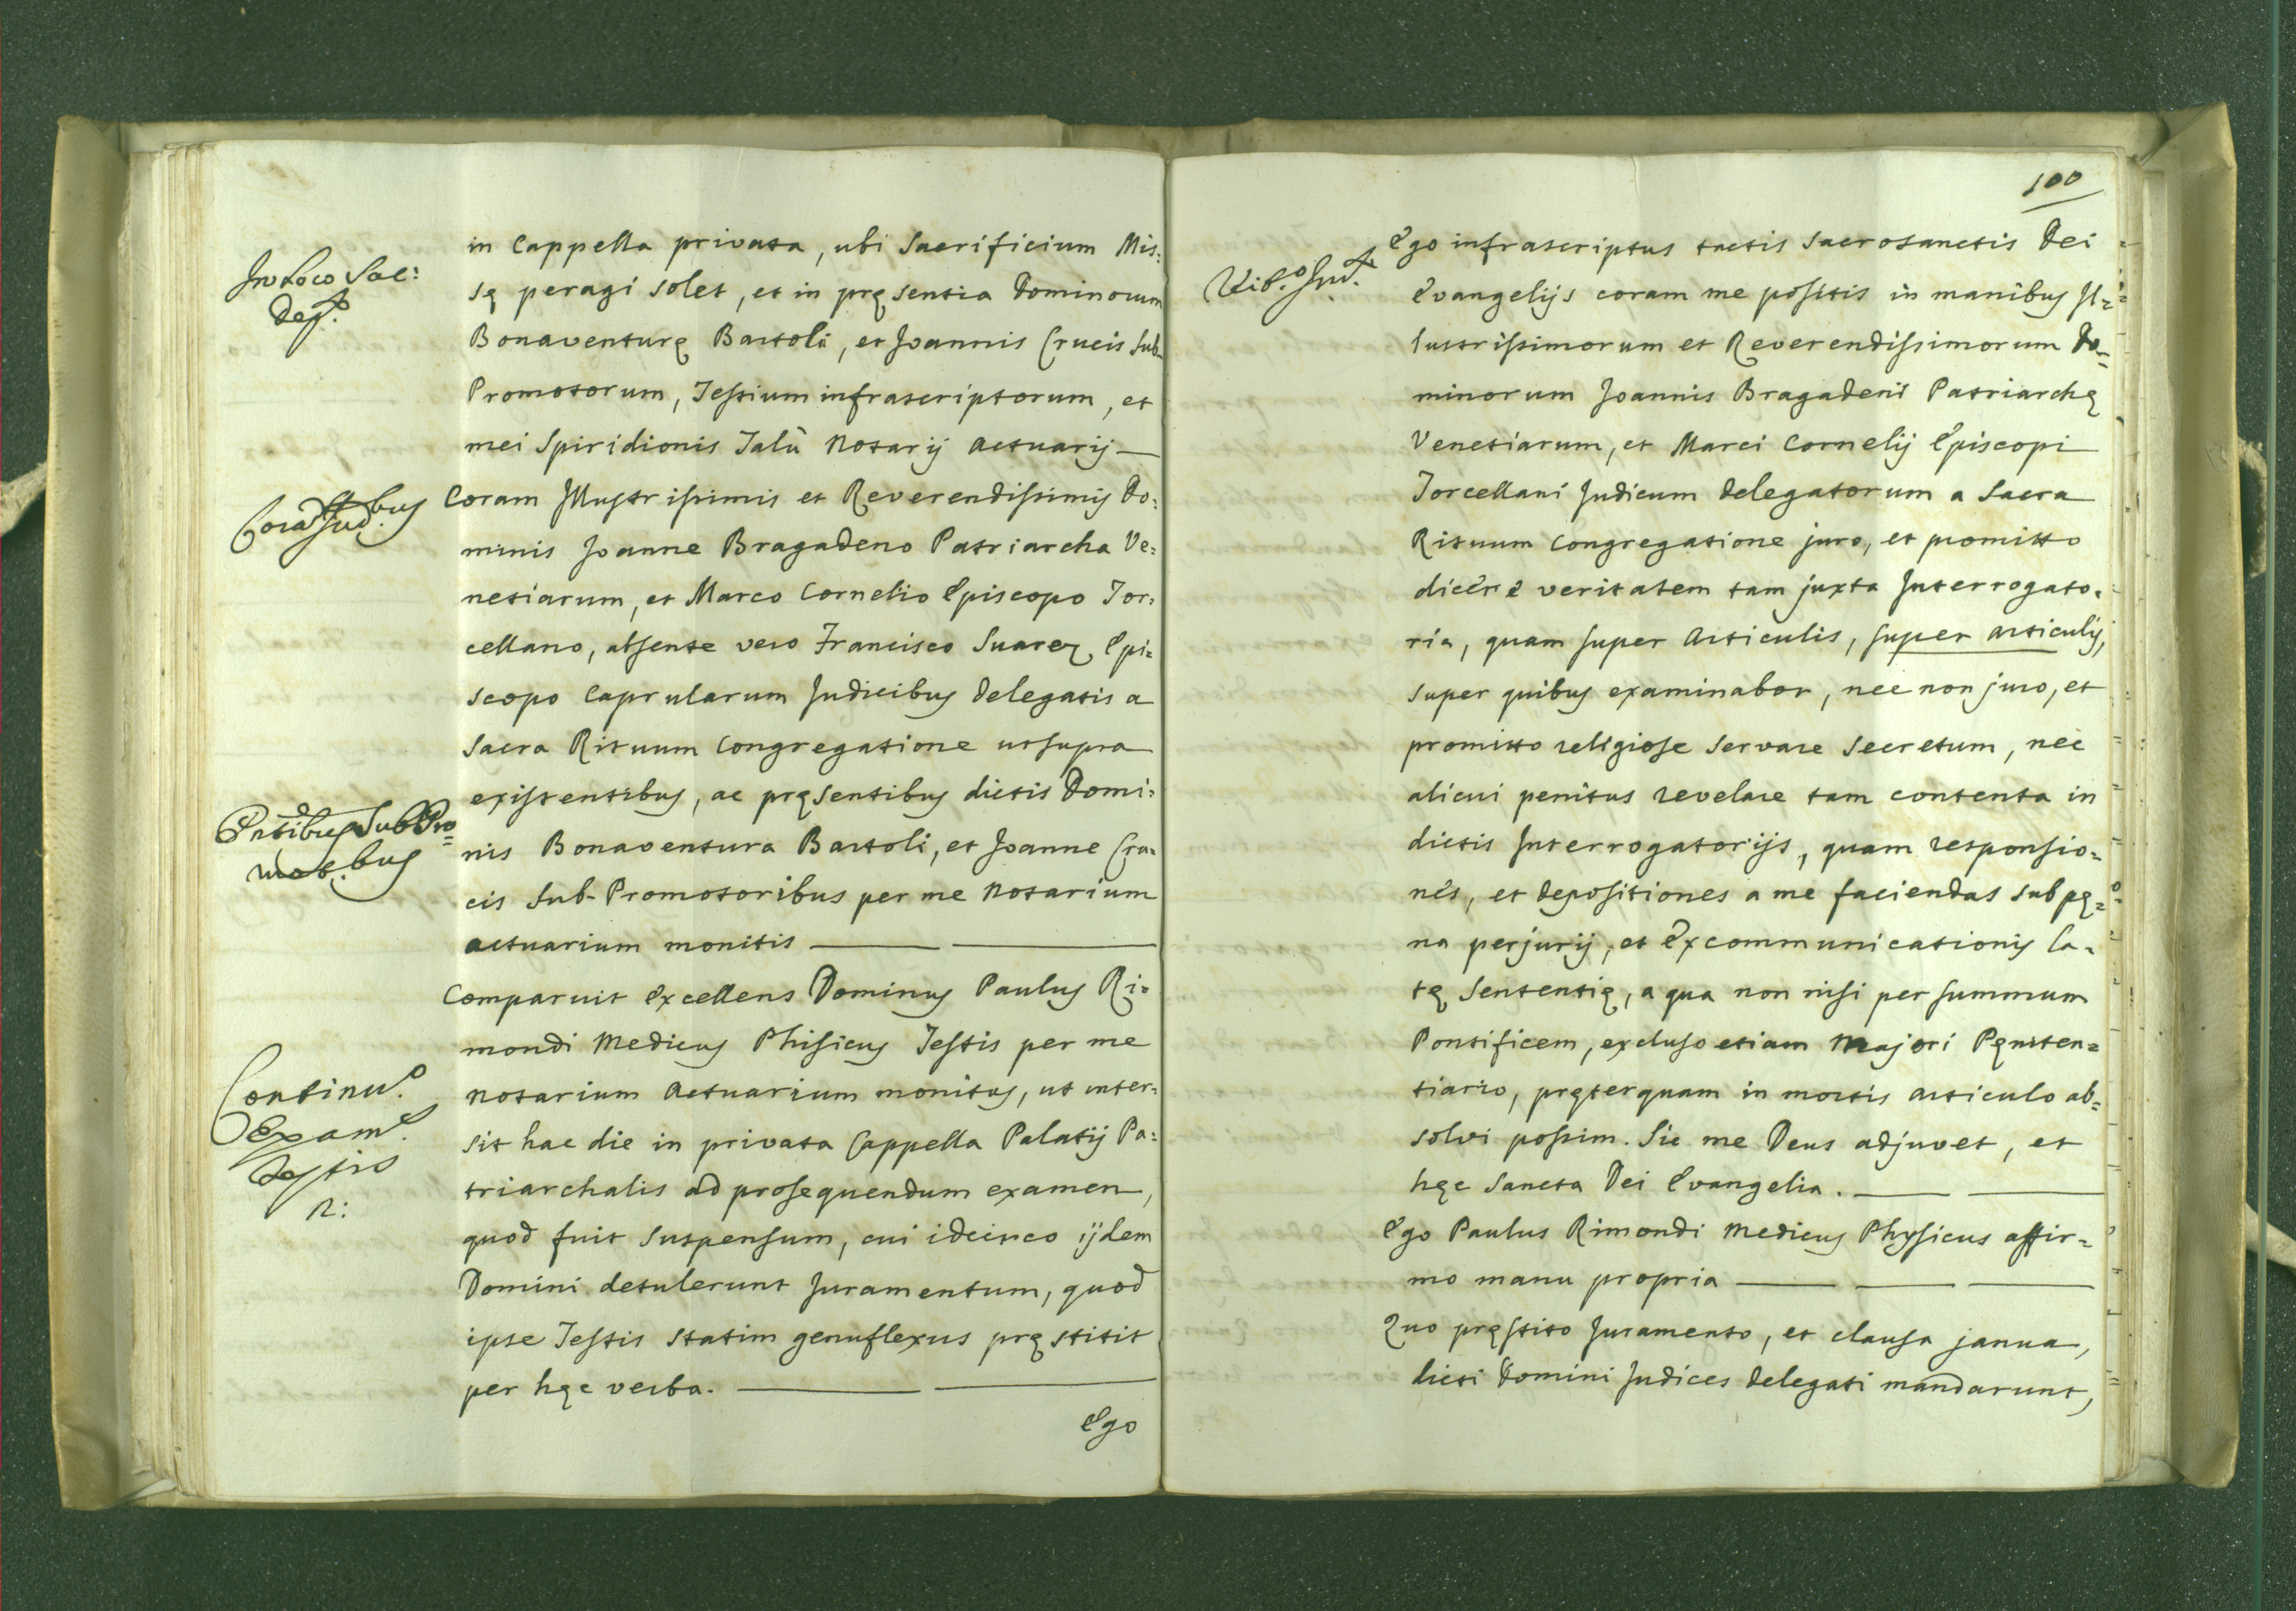 In Loco Sac:
Dep.
in Cappella privata, ubi Sacrificium Mis:
sę peragi solet, et in pręsentia Dominorum
Bonaventurę Bartoli, et Joannis Crucis Sub-
Promotorum, Testium infrascriptorum, et
mei Spiridionis Talù Notarij Actuarij
Corā Jud.bus
Coram Illustrissimis et Reverendissimis Do:
minis Joanne Bragadeno Patriarcha Ve:
netiarum, et Marco Cornelio Episcopo Tor:
cellano, absente vero Francisco Suarez Epi:
scopo Caprularum Judicibus Delegatis a
Sacra Rituum Congregatione ut supra
existentibus, ac pręsentibus dictis Domi:
Pntibus SubPro=
mot.bus
nis Bonaventura Bartoli, et Joanne Cru:
cis Sub-Promotoribus per me Notarium
Actuarium monitis
Comparuit Excellens Dominus Paulus Ri=
mondi Medicus Phisicus Testis per me
Continu.o
Exam.
Testis
Notarium Actuarium monitus, ut inter:
sit hac die in privata Cappella Palatij Pa:
triarchalis ad prosequendum examen,
quod fuit suspensum, cui idcirco ijdem
Domini detulerunt Juramentum, quod
ipse Testis statim genuflexus pręstitit
per hęc verba.
Ego
100
Ego infrascriptus tactis Sacrosanctis Dei
Evangelijs coram me positis in manibus Il=
lustrissimorum et Reverendissimorum Do=
minorum Joannis Bragadeni Patriarchę
Venetiarum, et Marci Cornelij Episcopi
Torcellani Judicum Delegatorum a Sacra
Rituum Congregatione juro, et promitto
dicere veritatem tam juxta Interrogato:
ria, quam super Articulis, super Articulis,
super quibus examinabor, nec non juro, et
promitto religiose servare secretum, nec
alicui penitus revelare tam contenta in
dictis Interrogatorijs, quam responsio=
nes, et depositiones a me faciendas sub pę=
na perjurij, et Excommunicationis la=
tę Sententię, a qua non nisi per summum
Pontificem, excluso etiam Majori Pęniten=
tiario, pręterquam in mortis articulo ab=
solvi possim. Sic me Deus adjuvet, et
hęc Sancta Dei Evangelia.
Ego Paulus Rimondi Medicus Physicus affir=
mo manu propria
Quo pręstito Juramento, et clausa janua,
dicti Domini Judices Delegati mandarunt,